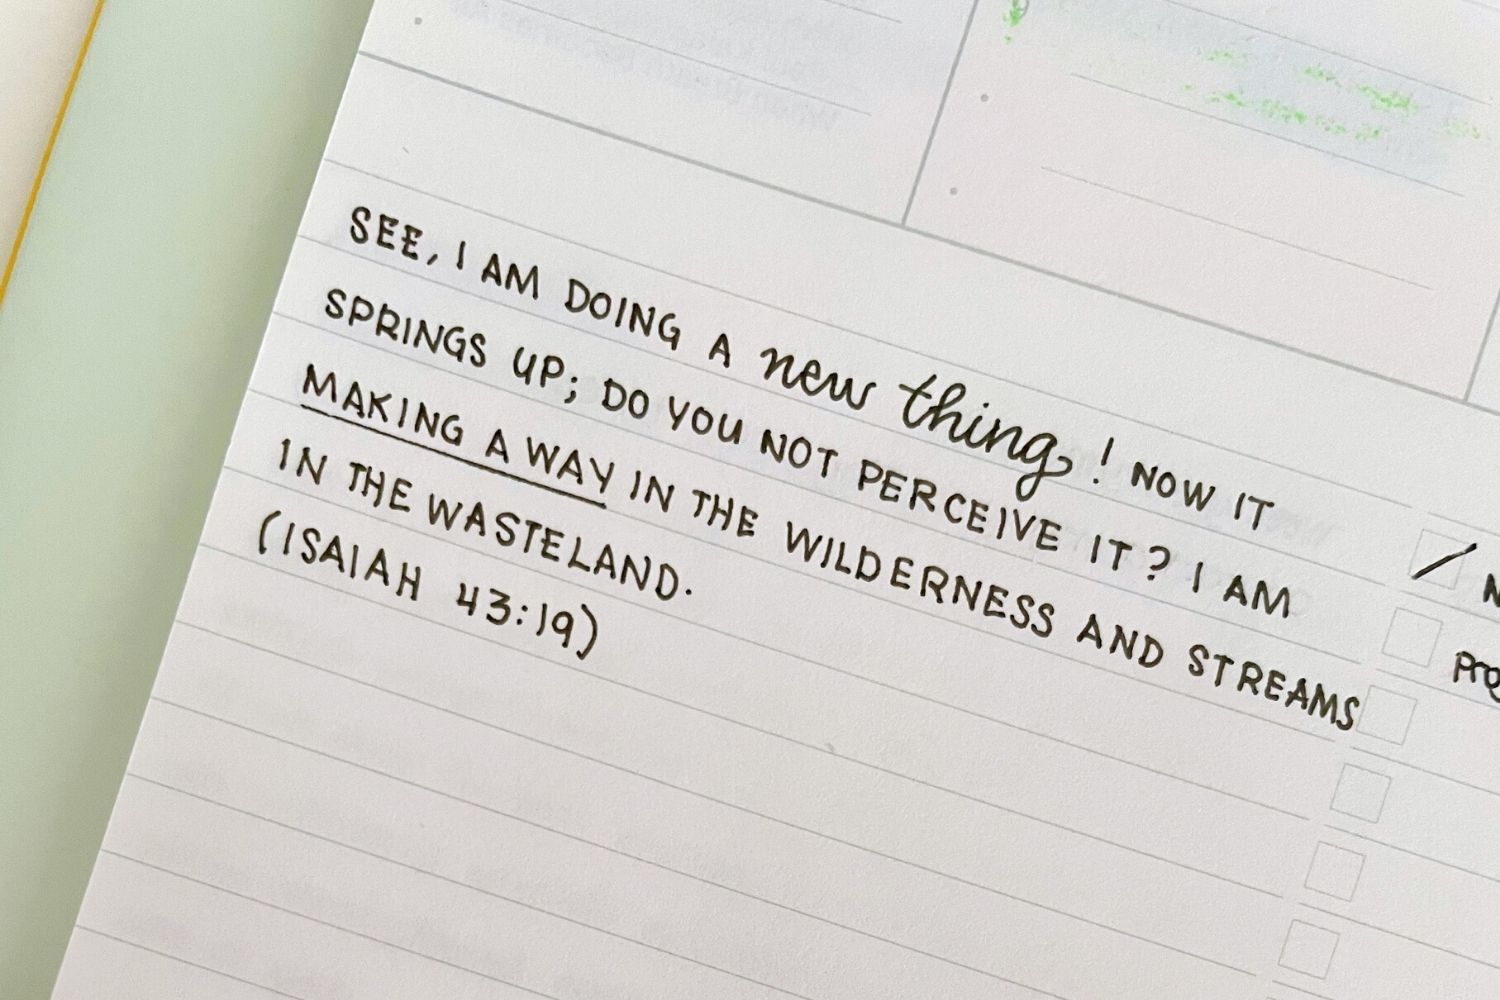 SEE, I AM DOING A new thing! NOW IT
SPRINGS UP; DO YOU NOT PERCEIVE IT? I AM
MAKING A WAY IN THE WILDERNESS AND STREAMS
IN THE WASTELAND.
(ISAIAH 43:19)